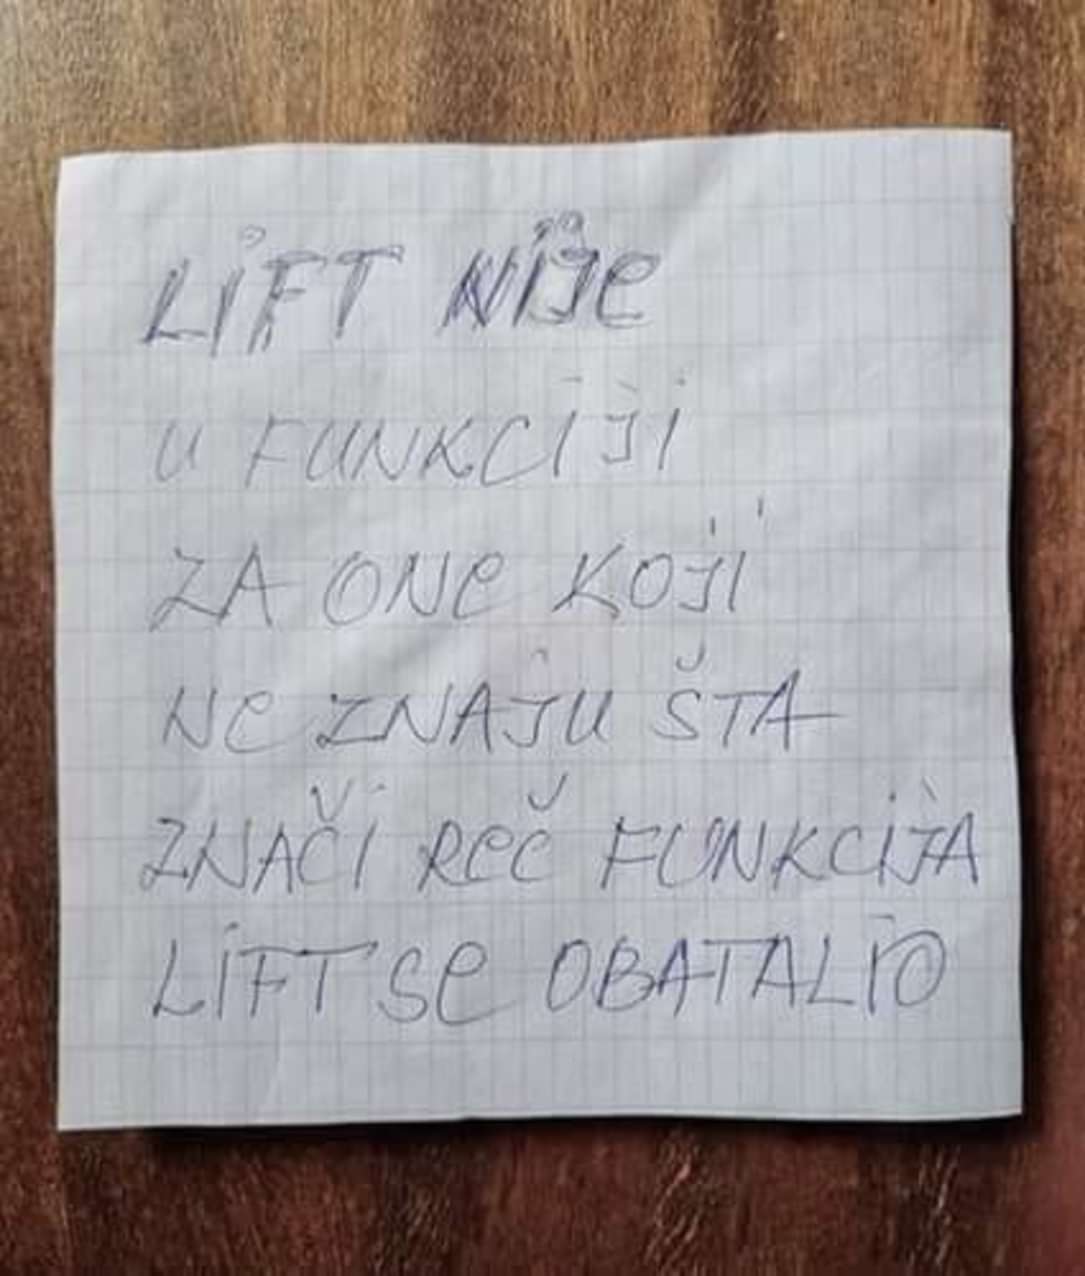 LIFT NIJE
U FUNKCIJI
ZA ONE KOJI
NE ZNAJU ŠTA
ZNAČI REČ FUNKCIJA
LIFT SE OBATALIO